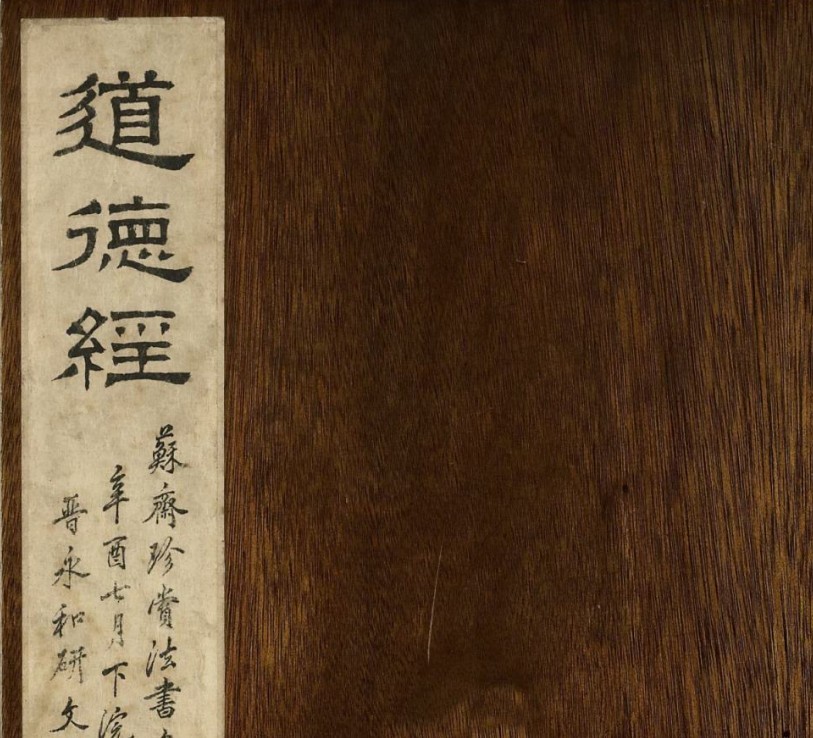 道德經
蘇齋珍賞法書
辛酉七月下浣
晋永和研文